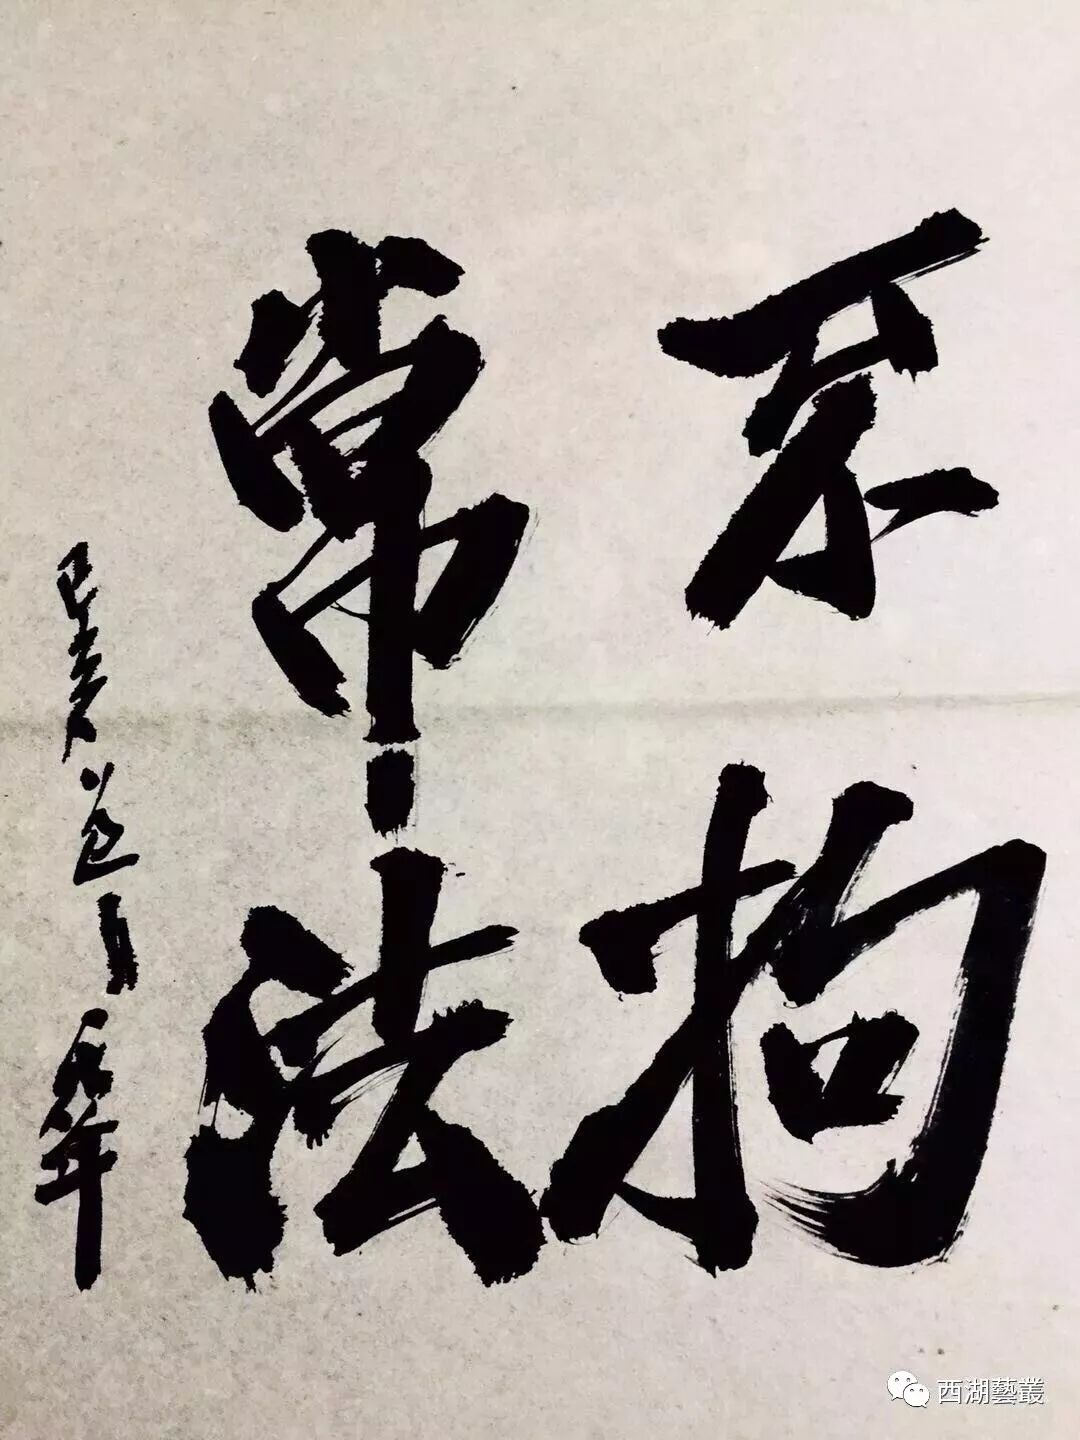 不拘
常法
己亥
西湖藝叢